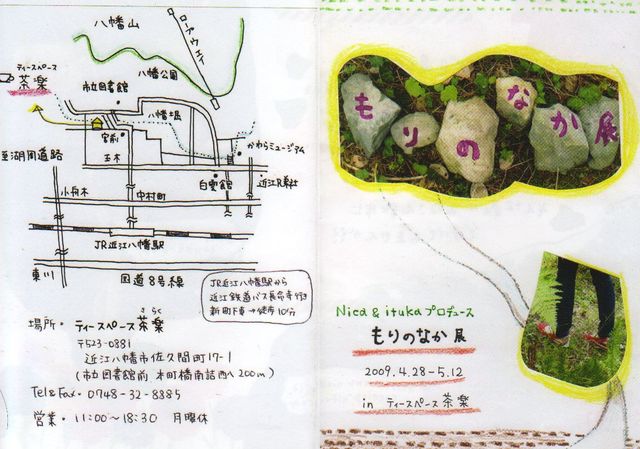 八幡山
ロープウェイ
ティースペース
茶楽
八幡公園
市立図書館
八幡堀
宮前
かわらミュージアム
至湖周道路
玉木
白雲館
小舟木
中村町
JR近江八幡駅
東川
国道8号線
JR近江八幡駅から
近江鉄道バス長命寺行き
新町下車→徒歩10分
場所・ティースペース茶楽
さらく
〒523-0881
近江八幡市佐久間町17-1
(市立図書館前 本町橋南詰西へ200m)
Tel&Fax・0748-32-8885
営業・11:00〜18:30 月曜休
もりのなか展
Nica & ituka プロデュース
もりのなか 展
2009.4.28-5.12
in ティースペース 茶楽